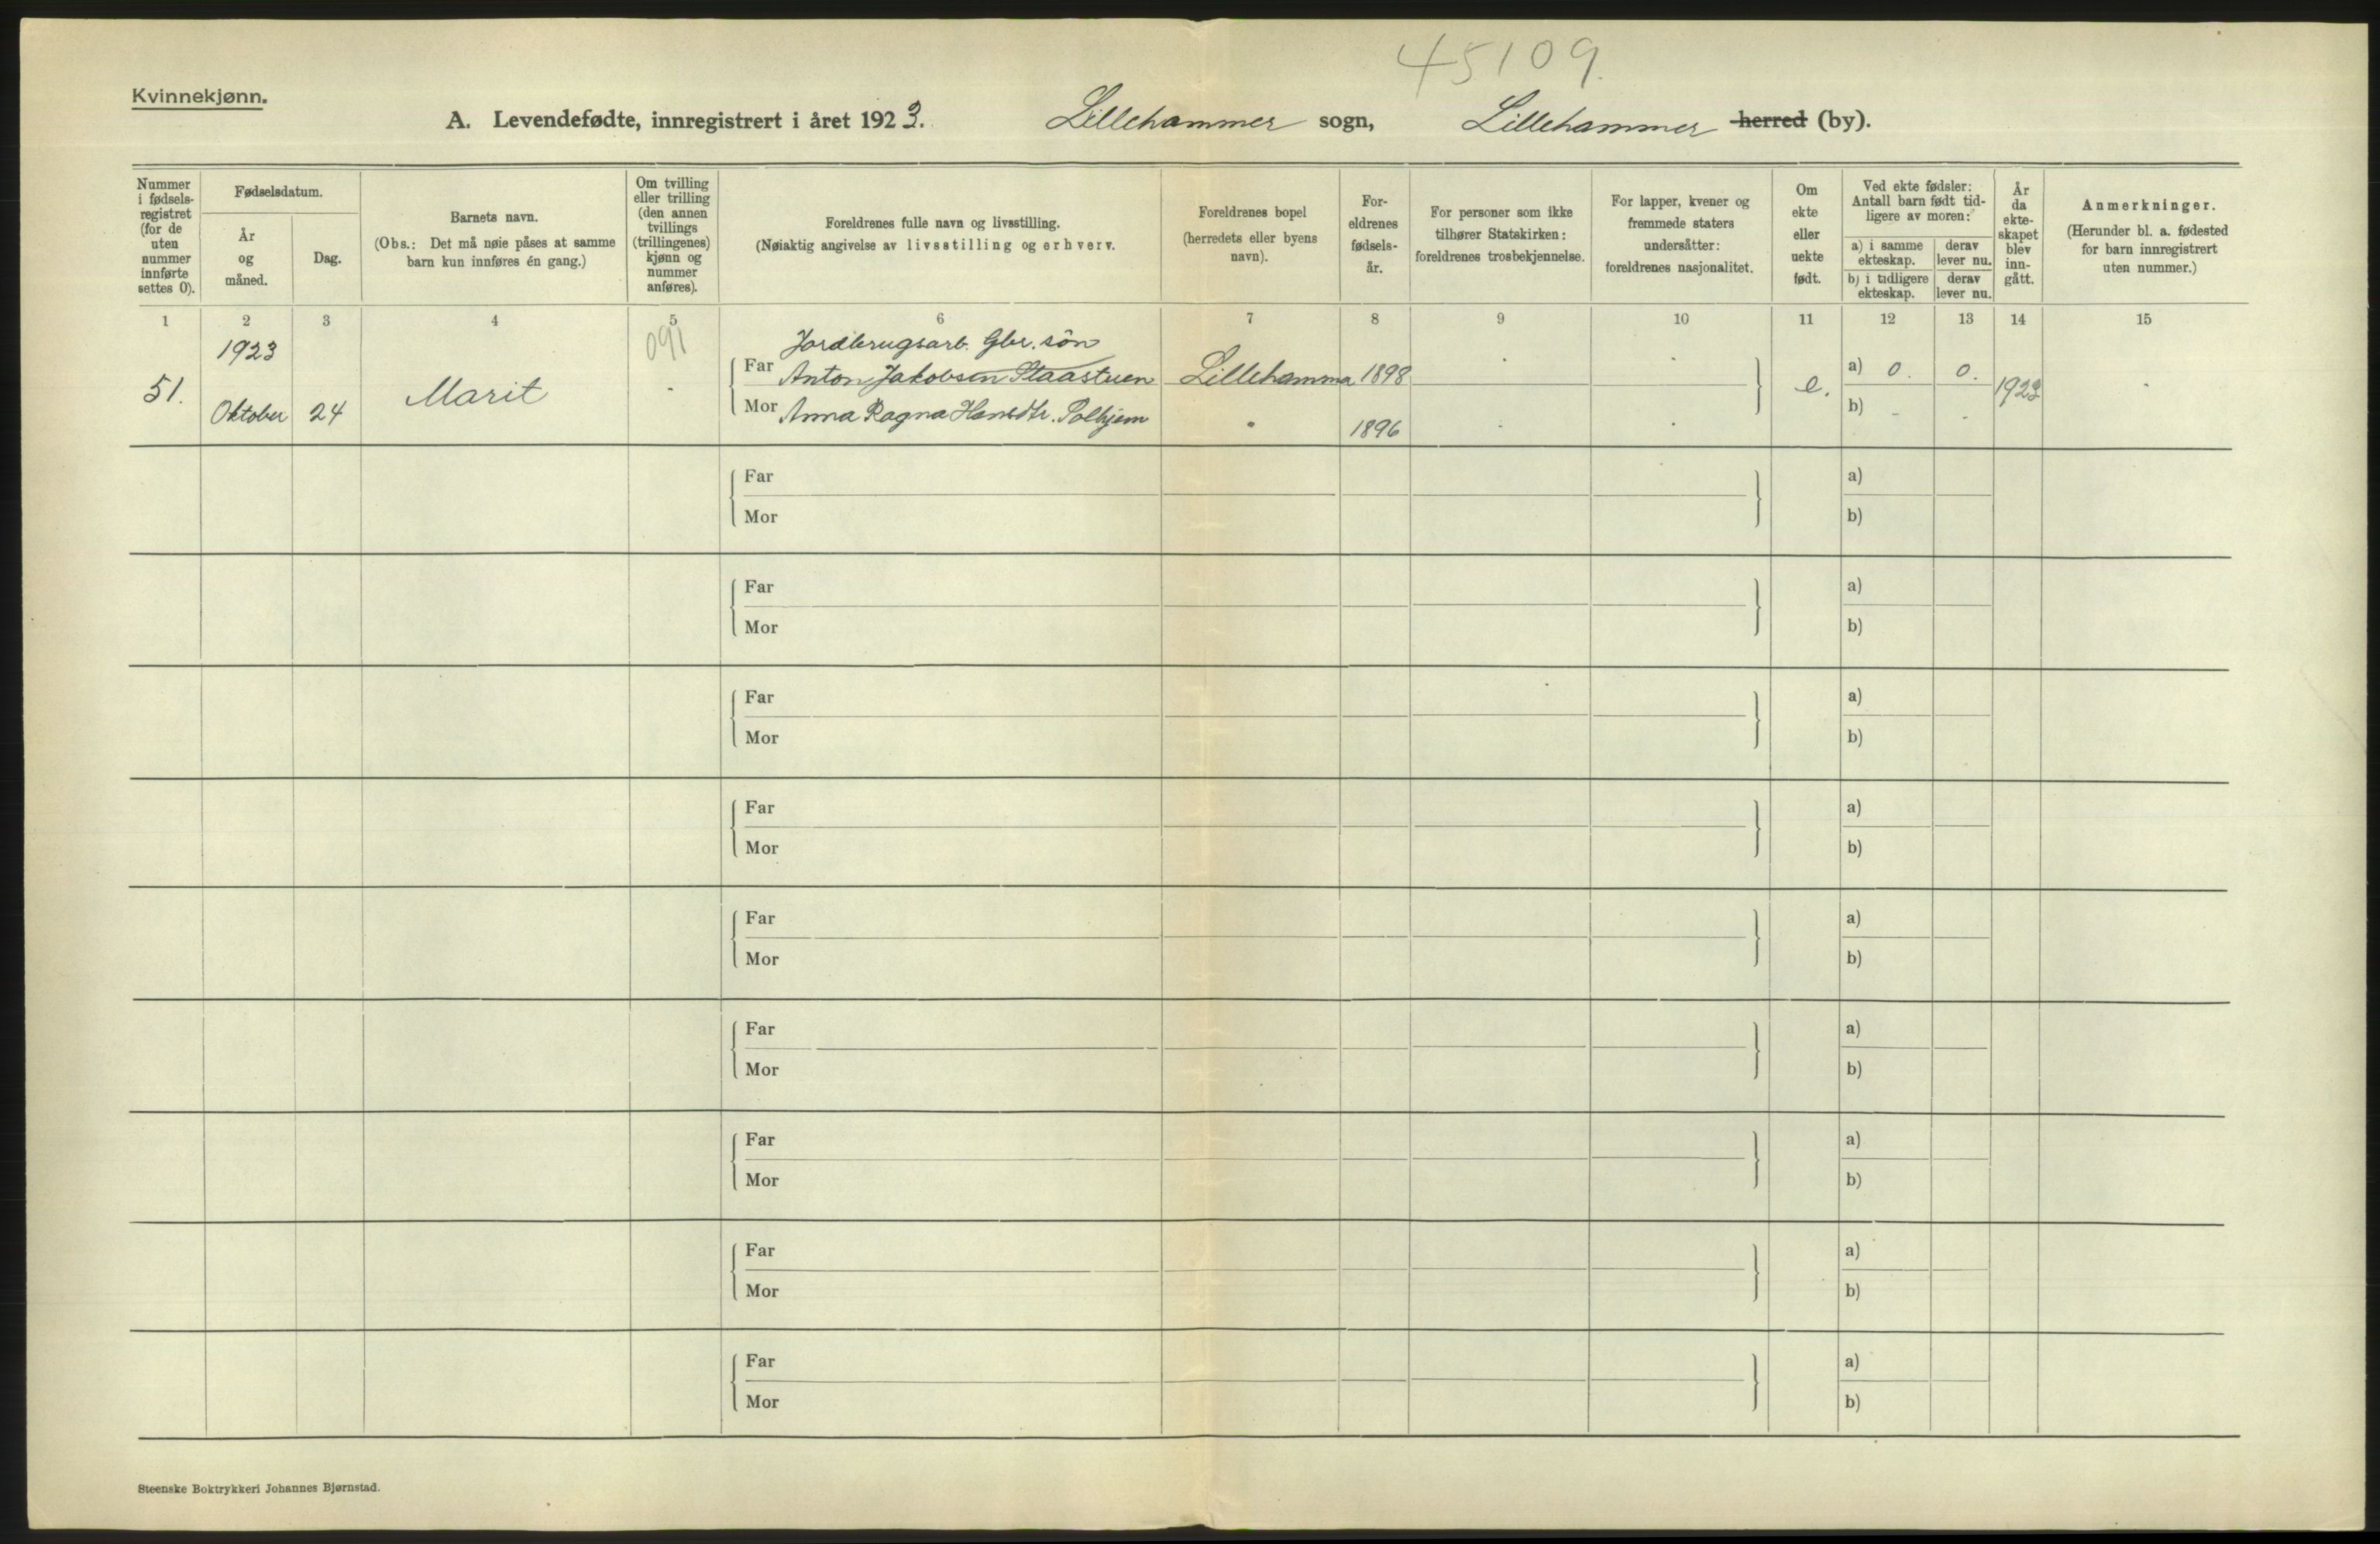 45109.
Kvinnekjønn.
A. Levendefødte, innregistrert i året 1923. Lillehammer sogn, Lillehammer herred (by).
Nummer i fødsels-registret (for de uten nummer innførte settes 0).
Fødselsdatum.
År og måned.
Dag.
Barnets navn.
(Obs.: Det må nøie påses at samme barn kun innføres én gang.)
Om tvilling eller trilling (den annen tvillings (trillingenes) kjønn og nummer anføres).
Foreldrenes fulle navn og livsstilling.
(Nøiaktig angivelse av livsstilling og erhverv.
Foreldrenes bopel (herredets eller byens navn).
For-eldrenes fødsels-år.
For personer som ikke tilhører Statskirken: foreldrenes trosbekjennelse.
For lapper, kvener og fremmede staters undersåtter: foreldrenes nasjonalitet.
Om ekte eller uekte født.
Ved ekte fødsler: Antall barn født tid-ligere av moren:
a) i samme ekteskap.
derav lever nu.
b) i tidligere ekteskap.
derav lever nu.
År da ekte-skapet blev inn-gått.
Anmerkninger.
(Herunder bl. a. fødested for barn innregistrert uten nummer.)
1 2 3 4 5 6 7 8 9 10 11 12 13 14 15
1923 091 Jordbrugsarb. Gbr. søn
51. Far Anton Jakobsen Staastuen Lillehammer 1898 e. a) 0. 0. 1923
Oktober 24 Marit - Mor Anna Ragna Hansdtr. " 1896 b) - -
Far a)
Mor b)
Far a)
Mor b)
Far a)
Mor b)
Far a)
Mor b)
Far a)
Mor b)
Far a)
Mor b)
Far a)
Mor b)
Far a)
Mor b)
Far a)
Mor b)
Steenske Boktrykkeri Johannes Bjørnstad.